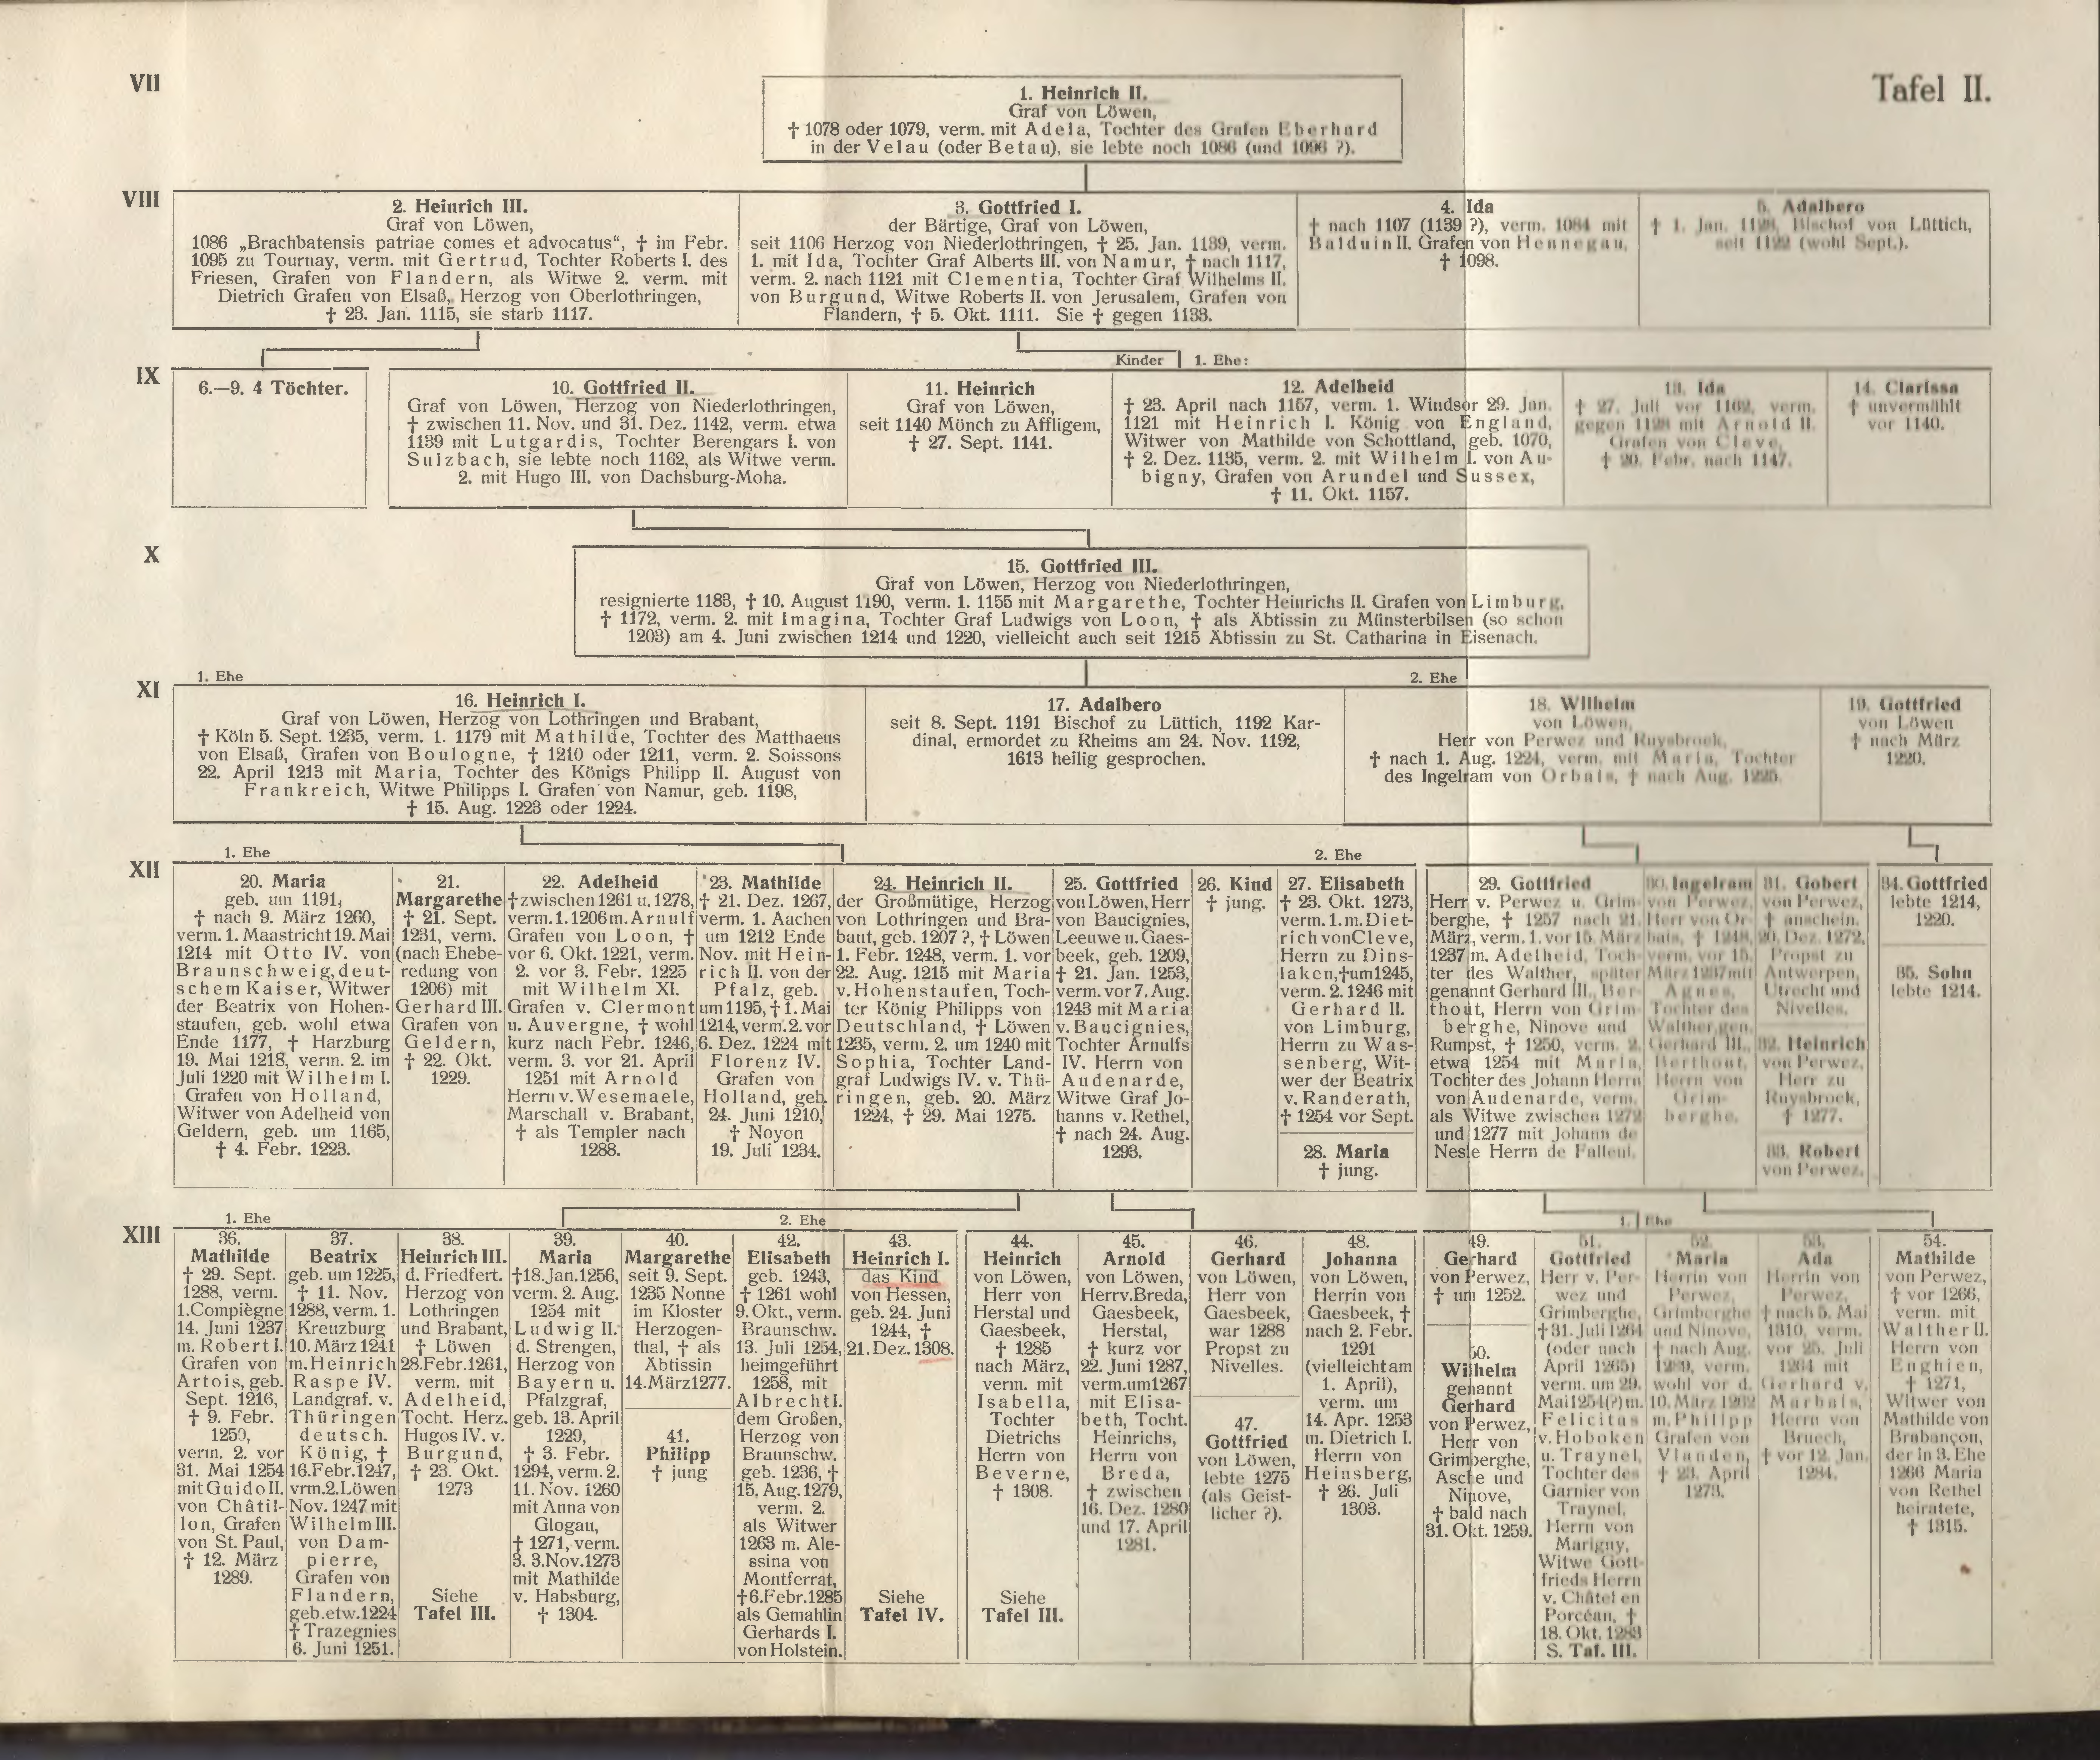 Tafel II.
VII
1. Heinrich II.
Graf von Löwen,
† 1078 oder 1079, verm. mit Adela, Tochter des Grafen Eberhard
in der Velau (oder Betau), sie lebte noch 1086 (und 1096 ?).
VIII
2. Heinrich III.
Graf von Löwen,
1086 „Brachbatensis patriae comes et advocatus“, † im Febr.
1095 zu Tournay, verm. mit Gertrud, Tochter Roberts I. des
Friesen, Grafen von Flandern, als Witwe 2. verm. mit
Dietrich Grafen von Elsaß, Herzog von Oberlothringen,
† 23. Jan. 1115, sie starb 1117.
3. Gottfried I.
der Bärtige, Graf von Löwen,
seit 1106 Herzog von Niederlothringen, † 25. Jan. 1139, verm.
1. mit Ida, Tochter Graf Alberts III. von Namur, † nach 1117,
verm. 2. nach 1121 mit Clementia, Tochter Graf Wilhelms II.
von Burgund, Witwe Roberts II. von Jerusalem, Grafen von
Flandern, † 5. Okt. 1111. Sie † gegen 1133.
4. Ida
† nach 1107 (1139 ?), verm. 1084 mit
Balduin II. Grafen von Hennegau,
† 1098.
5. Adalbero
† 1. Jan. Bischof von Lüttich,
seit (wohl Sept.).
IX
6.—9. 4 Töchter.
10. Gottfried II.
Graf von Löwen, Herzog von Niederlothringen,
† zwischen 11. Nov. und 31. Dez. 1142, verm. etwa
1139 mit Lutgardis, Tochter Berengars I. von
Sulzbach, sie lebte noch 1162, als Witwe verm.
2. mit Hugo III. von Dachsburg-Moha.
Kinder 1. Ehe:
11. Heinrich
Graf von Löwen,
seit 1140 Mönch zu Affligem,
† 27. Sept. 1141.
12. Adelheid
† 23. April nach 1157, verm. 1. Windsor 29. Jan.
1121 mit Heinrich I. König von England,
Witwer von Mathilde von Schottland, geb. 1070,
† 2. Dez. 1135, verm. 2. mit Wilhelm I. von Au-
bigny, Grafen von Arundel und Sussex,
† 11. Okt. 1157.
13. Ida
† 27. Juli vor verm.
gegen mit Arnold II.
Grafen von Cleve,
† 20. Febr. nach 1147.
14. Clarissa
† unvermählt
vor 1140.
X
15. Gottfried III.
Graf von Löwen, Herzog von Niederlothringen,
resignierte 1183, † 10. August 1190, verm. 1. 1155 mit Margarethe, Tochter Heinrichs II. Grafen von Limburg,
† 1172, verm. 2. mit Imagina, Tochter Graf Ludwigs von Loon, † als Äbtissin zu Münsterbilsen (so schon
1203) am 4. Juni zwischen 1214 und 1220, vielleicht auch seit 1215 Äbtissin zu St. Catharina in Eisenach.
XI
1. Ehe
16. Heinrich I.
Graf von Löwen, Herzog von Lothringen und Brabant,
† Köln 5. Sept. 1235, verm. 1. 1179 mit Mathilde, Tochter des Matthaeus
von Elsaß, Grafen von Boulogne, † 1210 oder 1211, verm. 2. Soissons
22. April 1213 mit Maria, Tochter des Königs Philipp II. August von
Frankreich, Witwe Philipps I. Grafen von Namur, geb. 1198,
† 15. Aug. 1223 oder 1224.
17. Adalbero
seit 8. Sept. 1191 Bischof zu Lüttich, 1192 Kar-
dinal, ermordet zu Rheims am 24. Nov. 1192,
1613 heilig gesprochen.
2. Ehe
18. Wilhelm
von Löwen,
Herr von Perwez und Ruysbrock,
† nach 1. Aug. 1224, verm. mit Maria, Tochter
des Ingelram von Orbais, † nach Aug.
19. Gottfried
von Löwen
† nach März
1220.
XII
1. Ehe
20. Maria
geb. um 1191,
† nach 9. März 1260,
verm. 1. Maastricht 19. Mai
1214 mit Otto IV. von
Braunschweig, deut-
schem Kaiser, Witwer
der Beatrix von Hohen-
staufen, geb. wohl etwa
Ende 1177, † Harzburg
19. Mai 1218, verm. 2. im
Juli 1220 mit Wilhelm I.
Grafen von Holland,
Witwer von Adelheid von
Geldern, geb. um 1165,
† 4. Febr. 1223.
21.
Margarethe
† 21. Sept.
1231, verm.
(nach Ehebe-
redung von
1206) mit
Gerhard III.
Grafen von
Geldern,
† 22. Okt.
1229.
22. Adelheid
† zwischen 1261 u. 1278,
verm. 1. 1206 m. Arnulf
Grafen von Loon, †
vor 6. Okt. 1221, verm.
2. vor 3. Febr. 1225
mit Wilhelm XI.
Grafen v. Clermont
u. Auvergne, † wohl
kurz nach Febr. 1246,
verm. 3. vor 21. April
1251 mit Arnold
Herrn v. Wesemaele,
Marschall v. Brabant,
† als Templer nach
1288.
23. Mathilde
† 21. Dez. 1267,
verm. 1. Aachen
um 1212 Ende
Nov. mit Hein-
rich II. von der
Pfalz, geb.
um 1195, † 1. Mai
1214, verm. 2. vor
6. Dez. 1224 mit
Florenz IV.
Grafen von
Holland, geb.
24. Juni 1210,
† Noyon
19. Juli 1234.
24. Heinrich II.
der Großmütige, Herzog
von Lothringen und Bra-
bant, geb. 1207 ?, † Löwen
1. Febr. 1248, verm. 1. vor
22. Aug. 1215 mit Maria
v. Hohenstaufen, Toch-
ter König Philipps von
Deutschland, † Löwen
1235, verm. 2. um 1240 mit
Sophia, Tochter Land-
graf Ludwigs IV. v. Thü-
ringen, geb. 20. März
1224, † 29. Mai 1275.
25. Gottfried
von Löwen, Herr
von Baucignies,
Leeuwe u. Gaes-
beek, geb. 1209,
† 21. Jan. 1253,
verm. vor 7. Aug.
1243 mit Maria
v. Baucignies,
Tochter Arnulfs
IV. Herrn von
Audenarde,
Witwe Graf Jo-
hanns v. Rethel,
† nach 24. Aug.
1293.
26. Kind
† jung.
2. Ehe
27. Elisabeth
† 23. Okt. 1273,
verm. 1. m. Diet-
rich von Cleve,
Herrn zu Dins-
laken, † um 1245,
verm. 2. 1246 mit
Gerhard II.
von Limburg,
Herrn zu Was-
senberg, Wit-
wer der Beatrix
v. Randerath,
† 1254 vor Sept.
28. Maria
† jung.
29. Gottfried
Herr v. Perwez u. Grim-
berghe, † 1257 nach 21.
März, verm. 1. vor 15. März
1237 m. Adelheid, Toch-
ter des Walther, später
genannt Gerhard III. Ber-
thout, Herrn von Grim-
berghe, Ninove und
Rumpst, † 1250, verm. 2.
etwa 1254 mit Maria,
Tochter des Johann Herrn
von Audenarde, verm.
als Witwe zwischen 1272
und 1277 mit Johann de
Nesle Herrn de Falleul.
30. Ingelram
von Perwez,
Herr von Or-
bais, †
verm. vor 15.
März 1237 mit
Agnes,
Tochter des
Walther gen.
Gerhard III.
Berthout,
Herrn von
Grim-
berghe.
31. Gobert
von Perwez,
† anschein.
20. Dez. 1272,
Propst zu
Antwerpen,
Utrecht und
Nivelles.
32. Heinrich
von Perwez,
Herr zu
Ruysbrock,
† 1277.
33. Robert
von Perwez.
34. Gottfried
lebte 1214,
1220.
35. Sohn
lebte 1214.
XIII
1. Ehe
36.
Mathilde
† 29. Sept.
1288, verm.
1. Compiègne
14. Juni 1237
m. Robert I.
Grafen von
Artois, geb.
Sept. 1216,
† 9. Febr.
1250,
verm. 2. vor
31. Mai 1254
mit Guido II.
von Châtil-
lon, Grafen
von St. Paul,
† 12. März
1289.
37.
Beatrix
geb. um 1225,
† 11. Nov.
1288, verm. 1.
Kreuzburg
10. März 1241
m. Heinrich
Raspe IV.
Landgraf. v.
Thüringen
deutsch.
König, †
16. Febr. 1247,
vrm. 2. Löwen
Nov. 1247 mit
Wilhelm III.
von Dam-
pierre,
Grafen von
Flandern,
geb. etw. 1224
† Trazegnies
6. Juni 1251.
38.
Heinrich III.
d. Friedfert.
Herzog von
Lothringen
und Brabant,
† Löwen
28. Febr. 1261,
verm. mit
Adelheid,
Tocht. Herz.
Hugos IV. v.
Burgund,
† 23. Okt.
1273
Siehe
Tafel III.
39.
Maria
† 18. Jan. 1256,
verm. 2. Aug.
1254 mit
Ludwig II.
d. Strengen,
Herzog von
Bayern u.
Pfalzgraf,
geb. 13. April
1229,
† 3. Febr.
1294, verm. 2.
11. Nov. 1260
mit Anna von
Glogau,
† 1271, verm.
3. 3. Nov. 1273
mit Mathilde
v. Habsburg,
† 1304.
40.
Margarethe
seit 9. Sept.
1235 Nonne
im Kloster
Herzogen-
thal, † als
Äbtissin
14. März 1277.
41.
Philipp
† jung
2. Ehe
42.
Elisabeth
geb. 1243,
† 1261 wohl
9. Okt., verm.
Braunschw.
13. Juli 1254,
heimgeführt
1258, mit
Albrecht I.
dem Großen,
Herzog von
Braunschw.
geb. 1236, †
15. Aug. 1279,
verm. 2.
als Witwer
1263 m. Ale-
ssina von
Montferrat,
† 6. Febr. 1285
als Gemahlin
Gerhards I.
von Holstein.
43.
Heinrich I.
das Kind
von Hessen,
geb. 24. Juni
1244, †
21. Dez. 1308.
Siehe
Tafel IV.
44.
Heinrich
von Löwen,
Herr von
Herstal und
Gaesbeek,
† 1285
nach März,
verm. mit
Isabella,
Tochter
Dietrichs
Herrn von
Beverne,
† 1308.
Siehe
Tafel III.
45.
Arnold
von Löwen,
Herr v. Breda,
Gaesbeek,
Herstal,
† kurz vor
22. Juni 1287,
verm. um 1267
mit Elisa-
beth, Tocht.
Heinrichs,
Herrn von
Breda,
† zwischen
16. Dez. 1280
und 17. April
1281.
46.
Gerhard
von Löwen,
Herr von
Gaesbeek,
war 1288
Propst zu
Nivelles.
47.
Gottfried
von Löwen,
lebte 1275
(als Geist-
licher ?).
48.
Johanna
von Löwen,
Herrin von
Gaesbeek, †
nach 2. Febr.
1291
(vielleicht am
1. April),
verm. um
14. Apr. 1253
m. Dietrich I.
Herrn von
Heinsberg,
† 26. Juli
1303.
49.
Gerhard
von Perwez,
† um 1252.
50.
Wilhelm
genannt
Gerhard
von Perwez,
Herr von
Grimberghe,
Asche und
Ninove,
† bald nach
31. Okt. 1259.
1. Ehe
51.
Gottfried
Herr v. Per-
wez und
Grimberghe,
† 31. Juli 1264
(oder nach
April 1265)
verm. um 29.
Mai 1254 (?) m.
Felicitas
v. Hoboken
u. Traynel,
Tochter des
Garnier von
Traynel,
Herrn von
Marigny,
Witwe Gott-
frieds Herrn
v. Châtel en
Porcéan, †
18. Okt. 1283
S. Taf. III.
52.
Maria
Herrin von
Perwez,
Grimberghe
und Ninove,
† nach Aug.
verm.
wohl vor d.
10. März
m. Philipp
Grafen von
Vianden,
† 23. April
1273.
53.
Ada
Herrin von
Perwez,
† nach 5. Mai
1310, verm.
vor 25. Juli
1264 mit
Gerhard v.
Marbais,
Herrn von
Bruech,
† vor 12. Jan.
1284.
54.
Mathilde
von Perwez,
† vor 1266,
verm. mit
Walther II.
Herrn von
Enghien,
† 1271,
Witwer von
Mathilde von
Brabançon,
der in 3. Ehe
1266 Maria
von Rethel
heiratete,
† 1315.